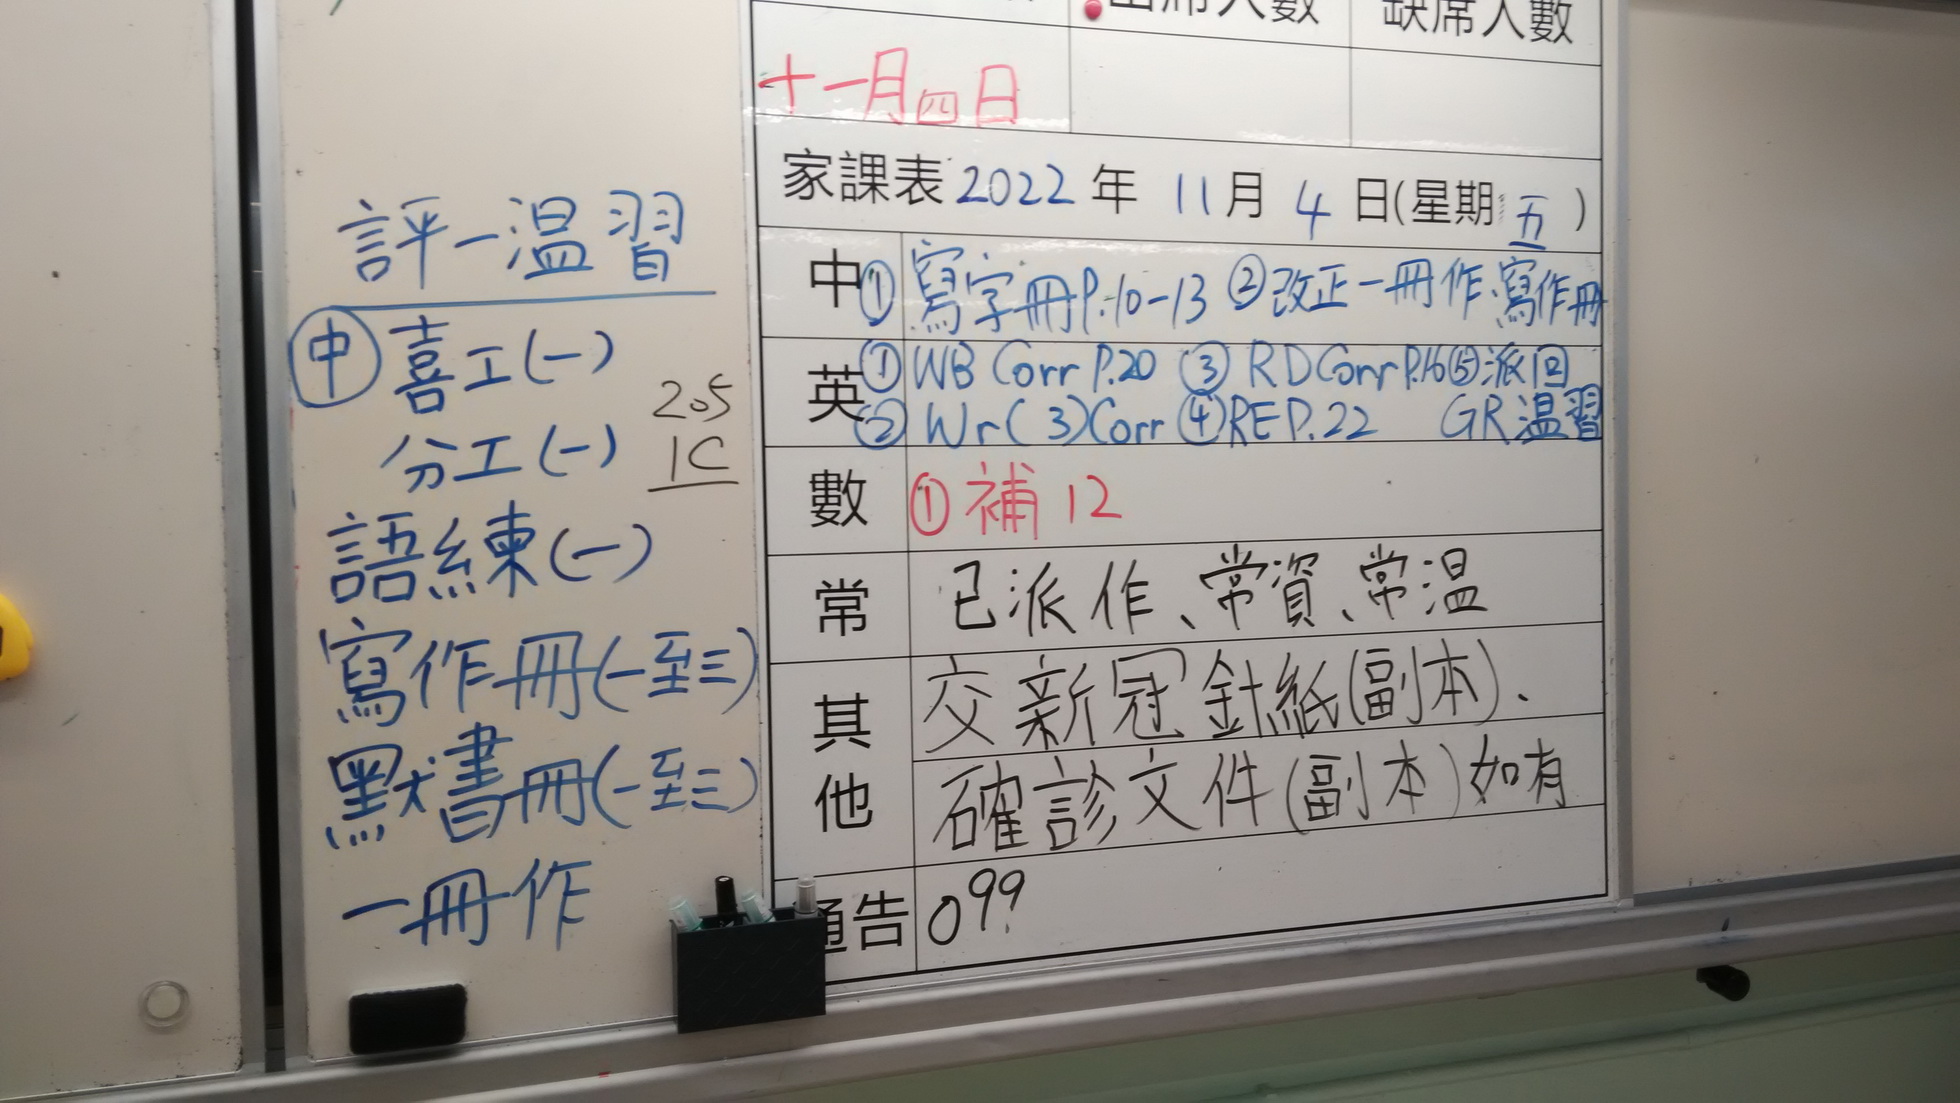 評一温習
中 喜工(一)
分工(一)
205
1C
語練(一)
寫作冊(一至三)
默書冊(一至三)
一冊作
出席人數 缺席人數
十一月四日
家課表 2022 年 11 月 4 日(星期五)
中 ①寫字冊P.10-13 ②改正一冊作、寫作冊
英 ①WB Corr P.20 ③RD Corr P.16 ⑤派回
②Wr(3)Corr ④RE P.22 GR温習
數 ①補12
常 已派作、常資、常温
其他 交新冠針紙(副本)、
確診文件(副本)如有
通告 099